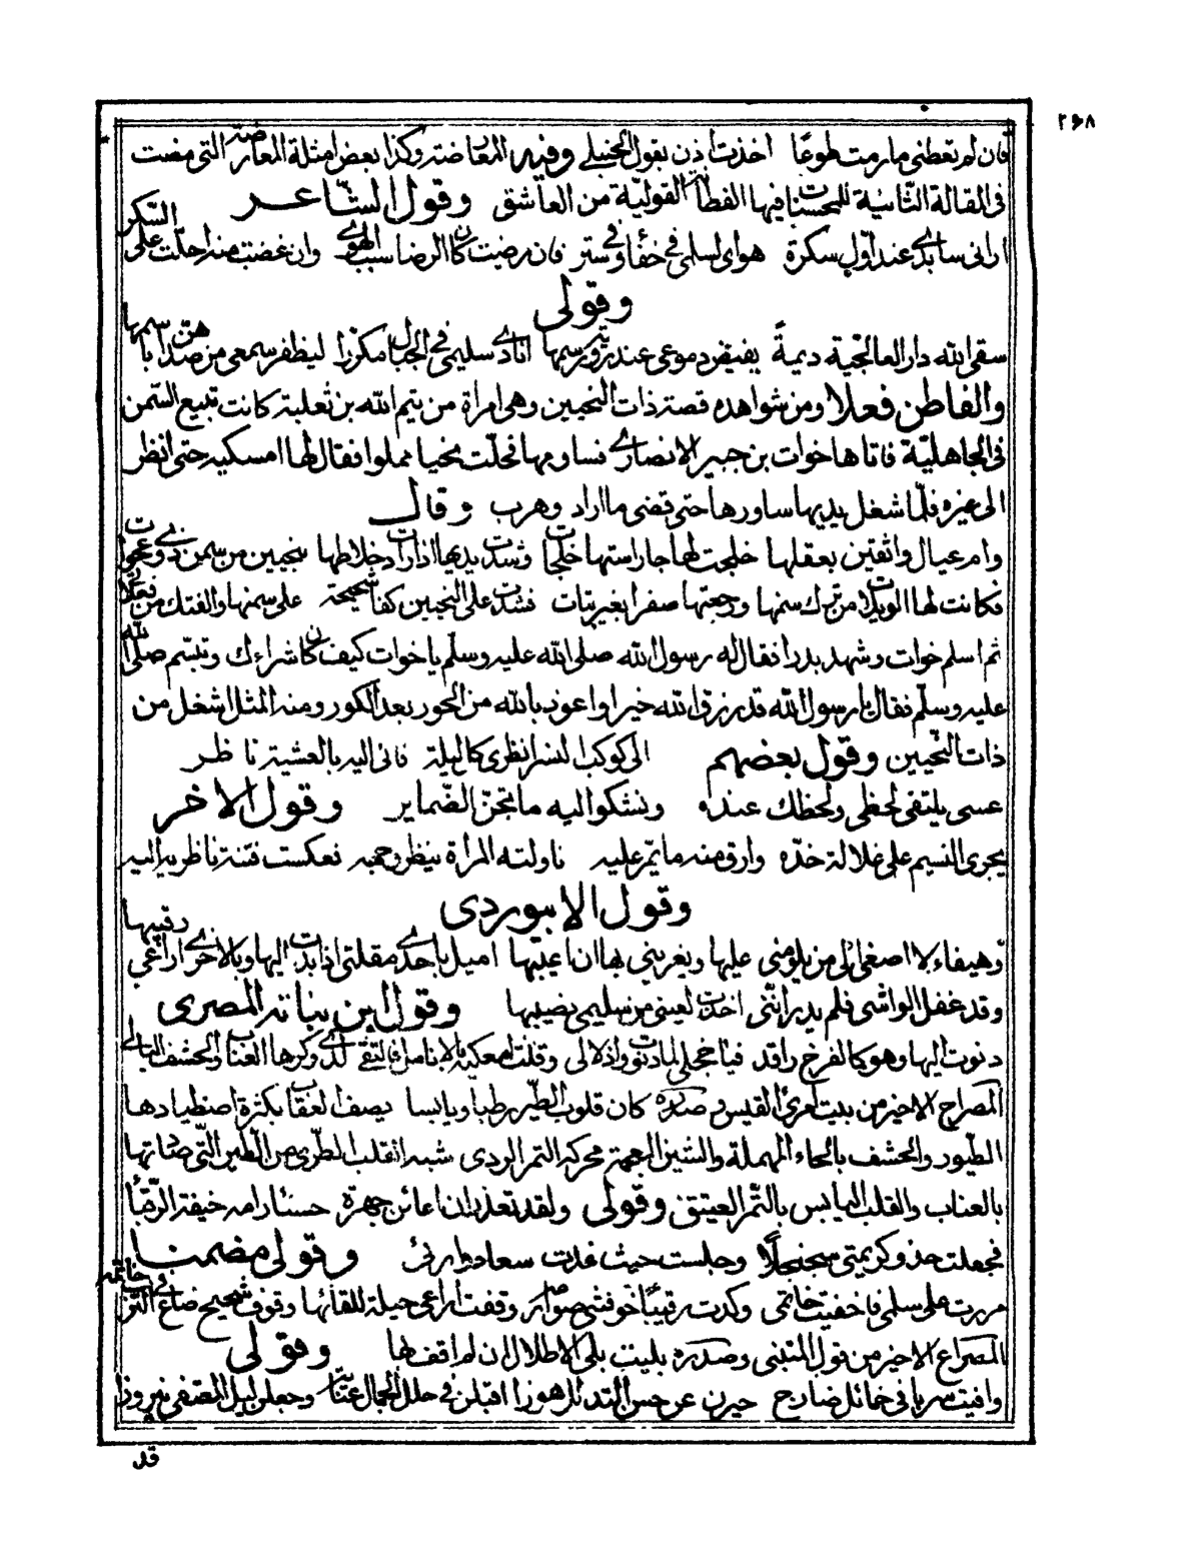 ٢٦٨
فان لم تعطني ما رمت طوعًا اخذت اذن بقول الحنبلي وفيه المعارضة وكذا بعض امثلة المعارضة التي مضت
في المقالة الثانية للمحسنات فيها الفطانة القولية من العاشق وقول الشاعر
اراني سابدي عند اول سكرة هواي لسلمى في خفا وفي ستر فان رضيت كان الرضا سبب الهوى وان غضبت منه احلت على السكر
وقولي
سقى الله دار العالجية ديمةً يفيض دموعي عند رسمها انادي سليمى في الجبال مكررا ليظفر سمعي من صداها باسمها
والفاطن فعلا ومن شواهده قصة ذات النحيين وهي امراة من تيم الله بن ثعلبة كانت تبيع السمن
في الجاهلية فاتاها خوات بن جبير الانصاري فساومها فحلت نحيا مملوا فقال لها امسكيه حتى انظر
الى غيره فلما شغل يديها ساورها حتى قضى ما اراد وهرب وقال
وام عيال واثقين بعقلها خلجت لها جار استها خلجات وشدت يديها اذ اردت خلاطها بنحيين من سمن ذوي عجرات
فكانت لها الويلات من ترك سمنها ورجعتها صفرا بغير بتات فشدت على النحيين كفا شحيحة على سمنها والفتك من فعلاتي
ثم اسلم خوات وشهد بدرا فقال له رسول الله صلى الله عليه وسلم يا خوات كيف كان شراءك وتبسم صلى الله
عليه وسلم فقال يا رسول الله قد رزق الله خيرا واعوذ بالله من الحور بعد الكور ومنه المثل اشغل من
ذات النحيين وقول بعضهم الى كوكب النسر انظري كل ليلة فاني اليه بالعشية ناظر
عسى يلتقي لحظي ولحظك عنده ونشكوا اليه ما تجن الضماير وقول الاخر
يجري النسيم على غلالة خده وارق منه ما يمر عليه ناولته المراة ينظر وجهه فعكست فتنة ناظريه اليه
وقول الابيوردي
وهيفاء لا اصغي الى من يلومني عليها ويغريني بها ان اعيبها اميل باحدى مقلتي اذا بدت اليها وبالاخرى اراعي رقيبها
وقد غفل الواشي فلم يدر انني اخذت لعيني من سليمى نصيبها وقول ابن نباتة المصري
دنوت اليها وهو كالفرخ راقد فيا خجلي لما دنوت واذلالي وقلت امعكيه بالانامل فالتقى لدى وكرها العناب والحشف البالي
المصراع الاخير من بيت امرئ القيس وصدره كان قلوب الطير رطبا ويابسا يصف العقاب بكثرة اصطيادها
الطيور والحشف بالحاء المهملة والشين المعجمة محركة التمر الردي شبه القلب الطري من الطير التي صادتها
بالعناب والقلب اليابس بالتمر العتيق وقولي ولقد تعذر ان اعاين جهرة حسنا رامه خيفة الرقبا
فجعلت حذو كريمتي سجنجلًا وجلست حيث غدت سعاد ورائي وقولي مضمنا
مررت على سلمى فاخفيت خاتمي وكدت رقيبًا خوفني صوارمه وقفت اراعي حيلة للقائها وقوف شحيح ضاع في الترب خاتمه
المصراع الاخير من قول المتنبي وصدره بليت بلى الاطلال ان لم اقف بها وقولي
وافيت سربا في خمائل ضارج حيرن عن حسن التدلل هوزا اقبلن في حلل الجمال عتابه وجعلن ليل المصطفي نيروزا
قد